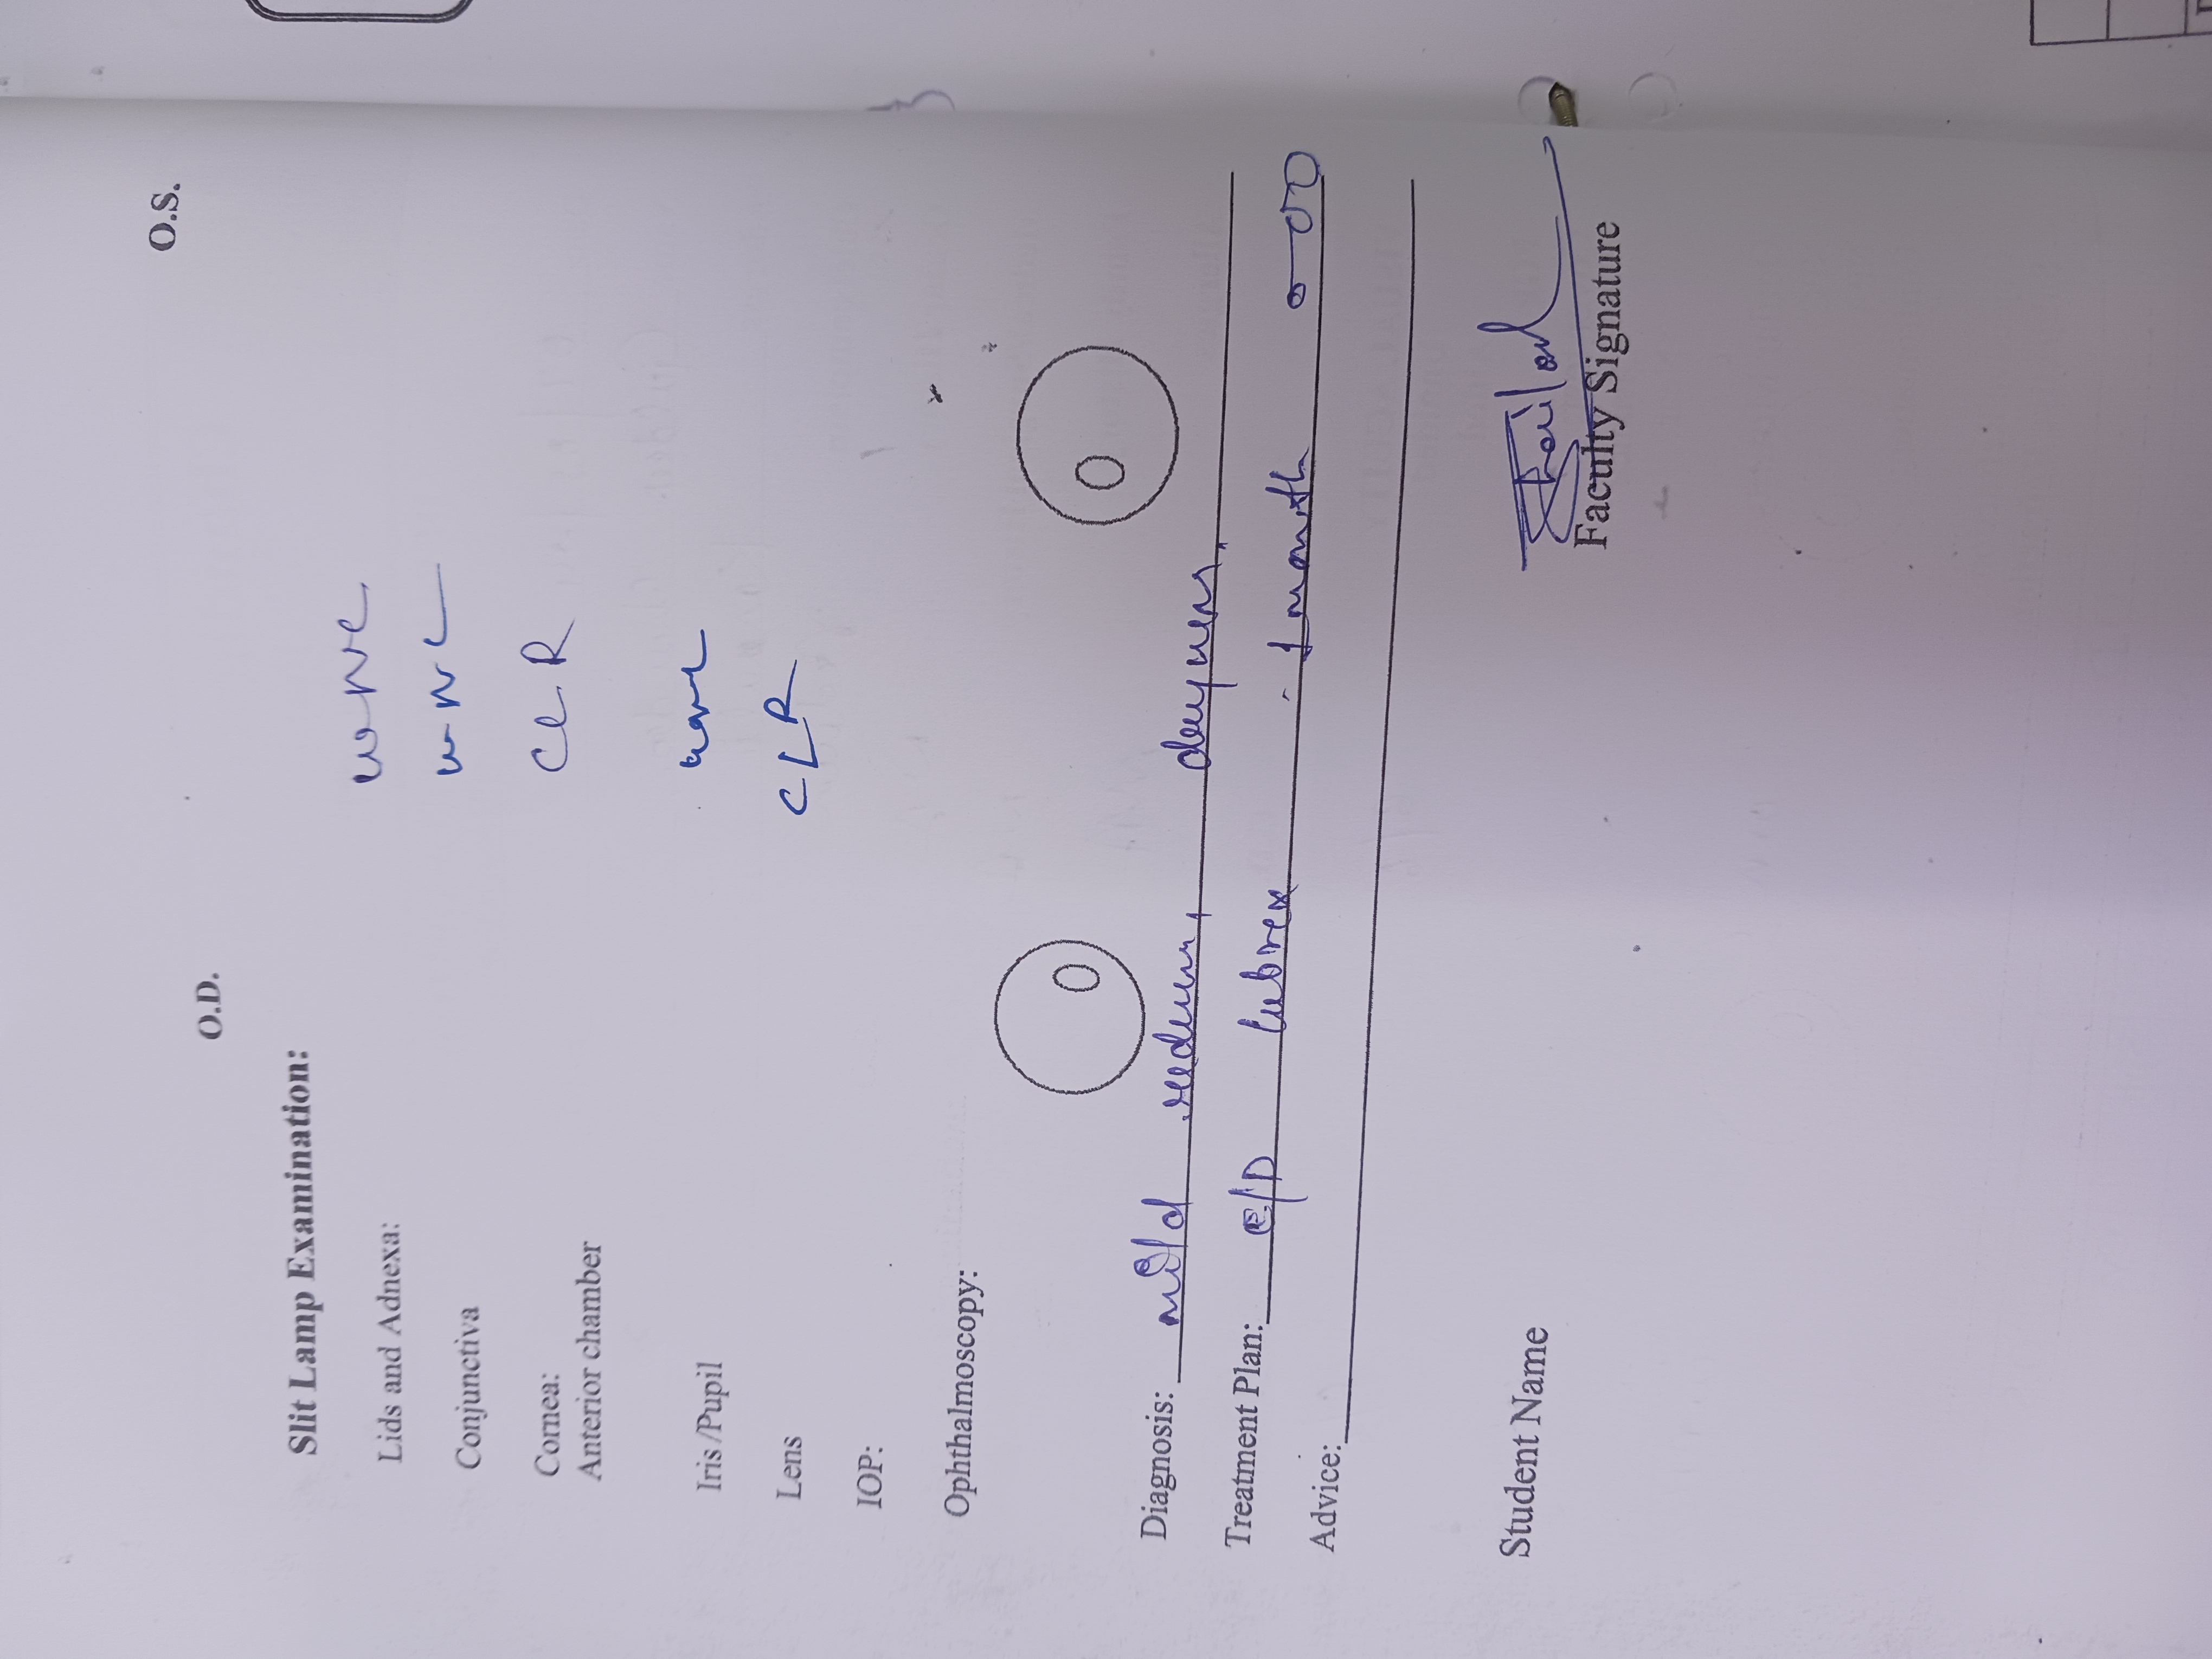 O.S.
O.D.
Slit Lamp Examination:
Lids and Adnexa: WNL
Conjunctiva WNL
Cornea: CLR
Anterior chamber
Iris /Pupil WNL
Lens CLR
IOP:
Ophthalmoscopy:
Diagnosis: mild redness, dryness,
Treatment Plan: E/D lubrex - 1 month
Advice:
Student Name
Faculty Signature